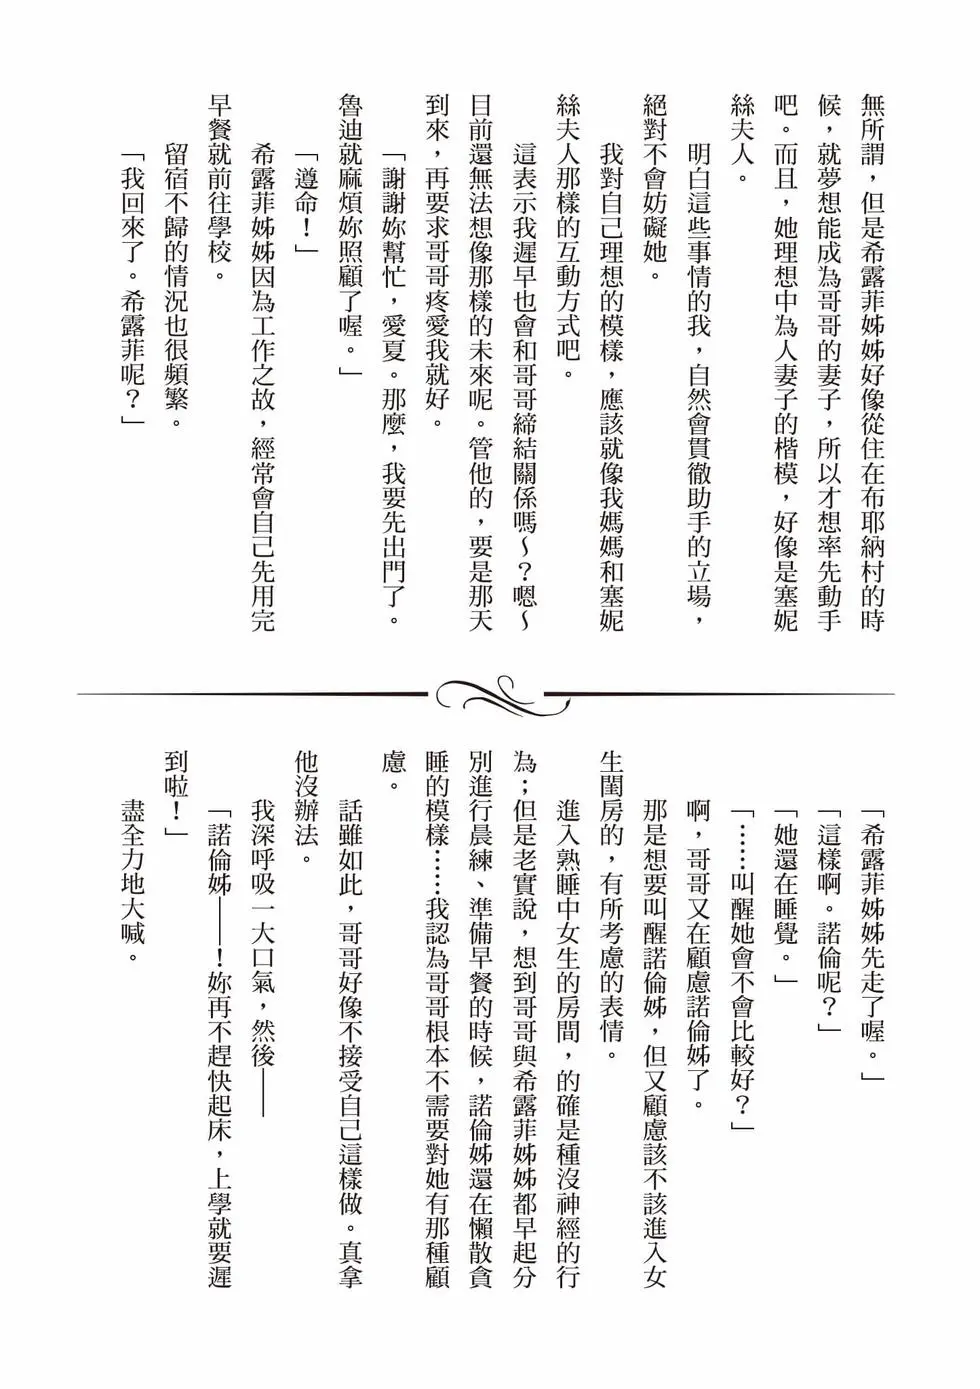 無所謂，但是希露菲姊姊好像從住在布耶納村的時
候，就夢想能成為哥哥的妻子，所以才想率先動手
吧。而且，她理想中為人妻子的楷模，好像是塞妮
絲夫人。
明白這些事情的我，自然會貫徹助手的立場，
絕對不會妨礙她。
我對自己理想的模樣，應該就像我媽媽和塞妮
絲夫人那樣的互動方式吧。
這表示我遲早也會和哥哥締結關係嗎～？嗯～
目前還無法想像那樣的未來呢。管他的，要是那天
到來，再要求哥哥疼愛我就好。
「謝謝妳幫忙，愛夏。那麼，我要先出門了。
魯迪就麻煩妳照顧了喔。」
「遵命！」
希露菲姊姊因為工作之故，經常會自己先用完
早餐就前往學校。
留宿不歸的情況也很頻繁。
「我回來了。希露菲呢？」
「希露菲姊姊先走了喔。」
「這樣啊。諾倫呢？」
「她還在睡覺。」
「……叫醒她會不會比較好？」
啊，哥哥又在顧慮諾倫姊了。
那是想要叫醒諾倫姊，但又顧慮該不該進入女
生閨房的，有所考慮的表情。
進入熟睡中女生的房間，的確是種沒神經的行
為；但是老實說，想到哥哥與希露菲姊姊都早起分
別進行晨練、準備早餐的時候，諾倫姊還在懶散貪
睡的模樣……我認為哥哥根本不需要對她有那種顧
慮。
話雖如此，哥哥好像不接受自己這樣做。真拿
他沒辦法。
我深呼吸一大口氣，然後——
「諾倫姊——！妳再不趕快起床，上學就要遲
到啦！」
盡全力地大喊。